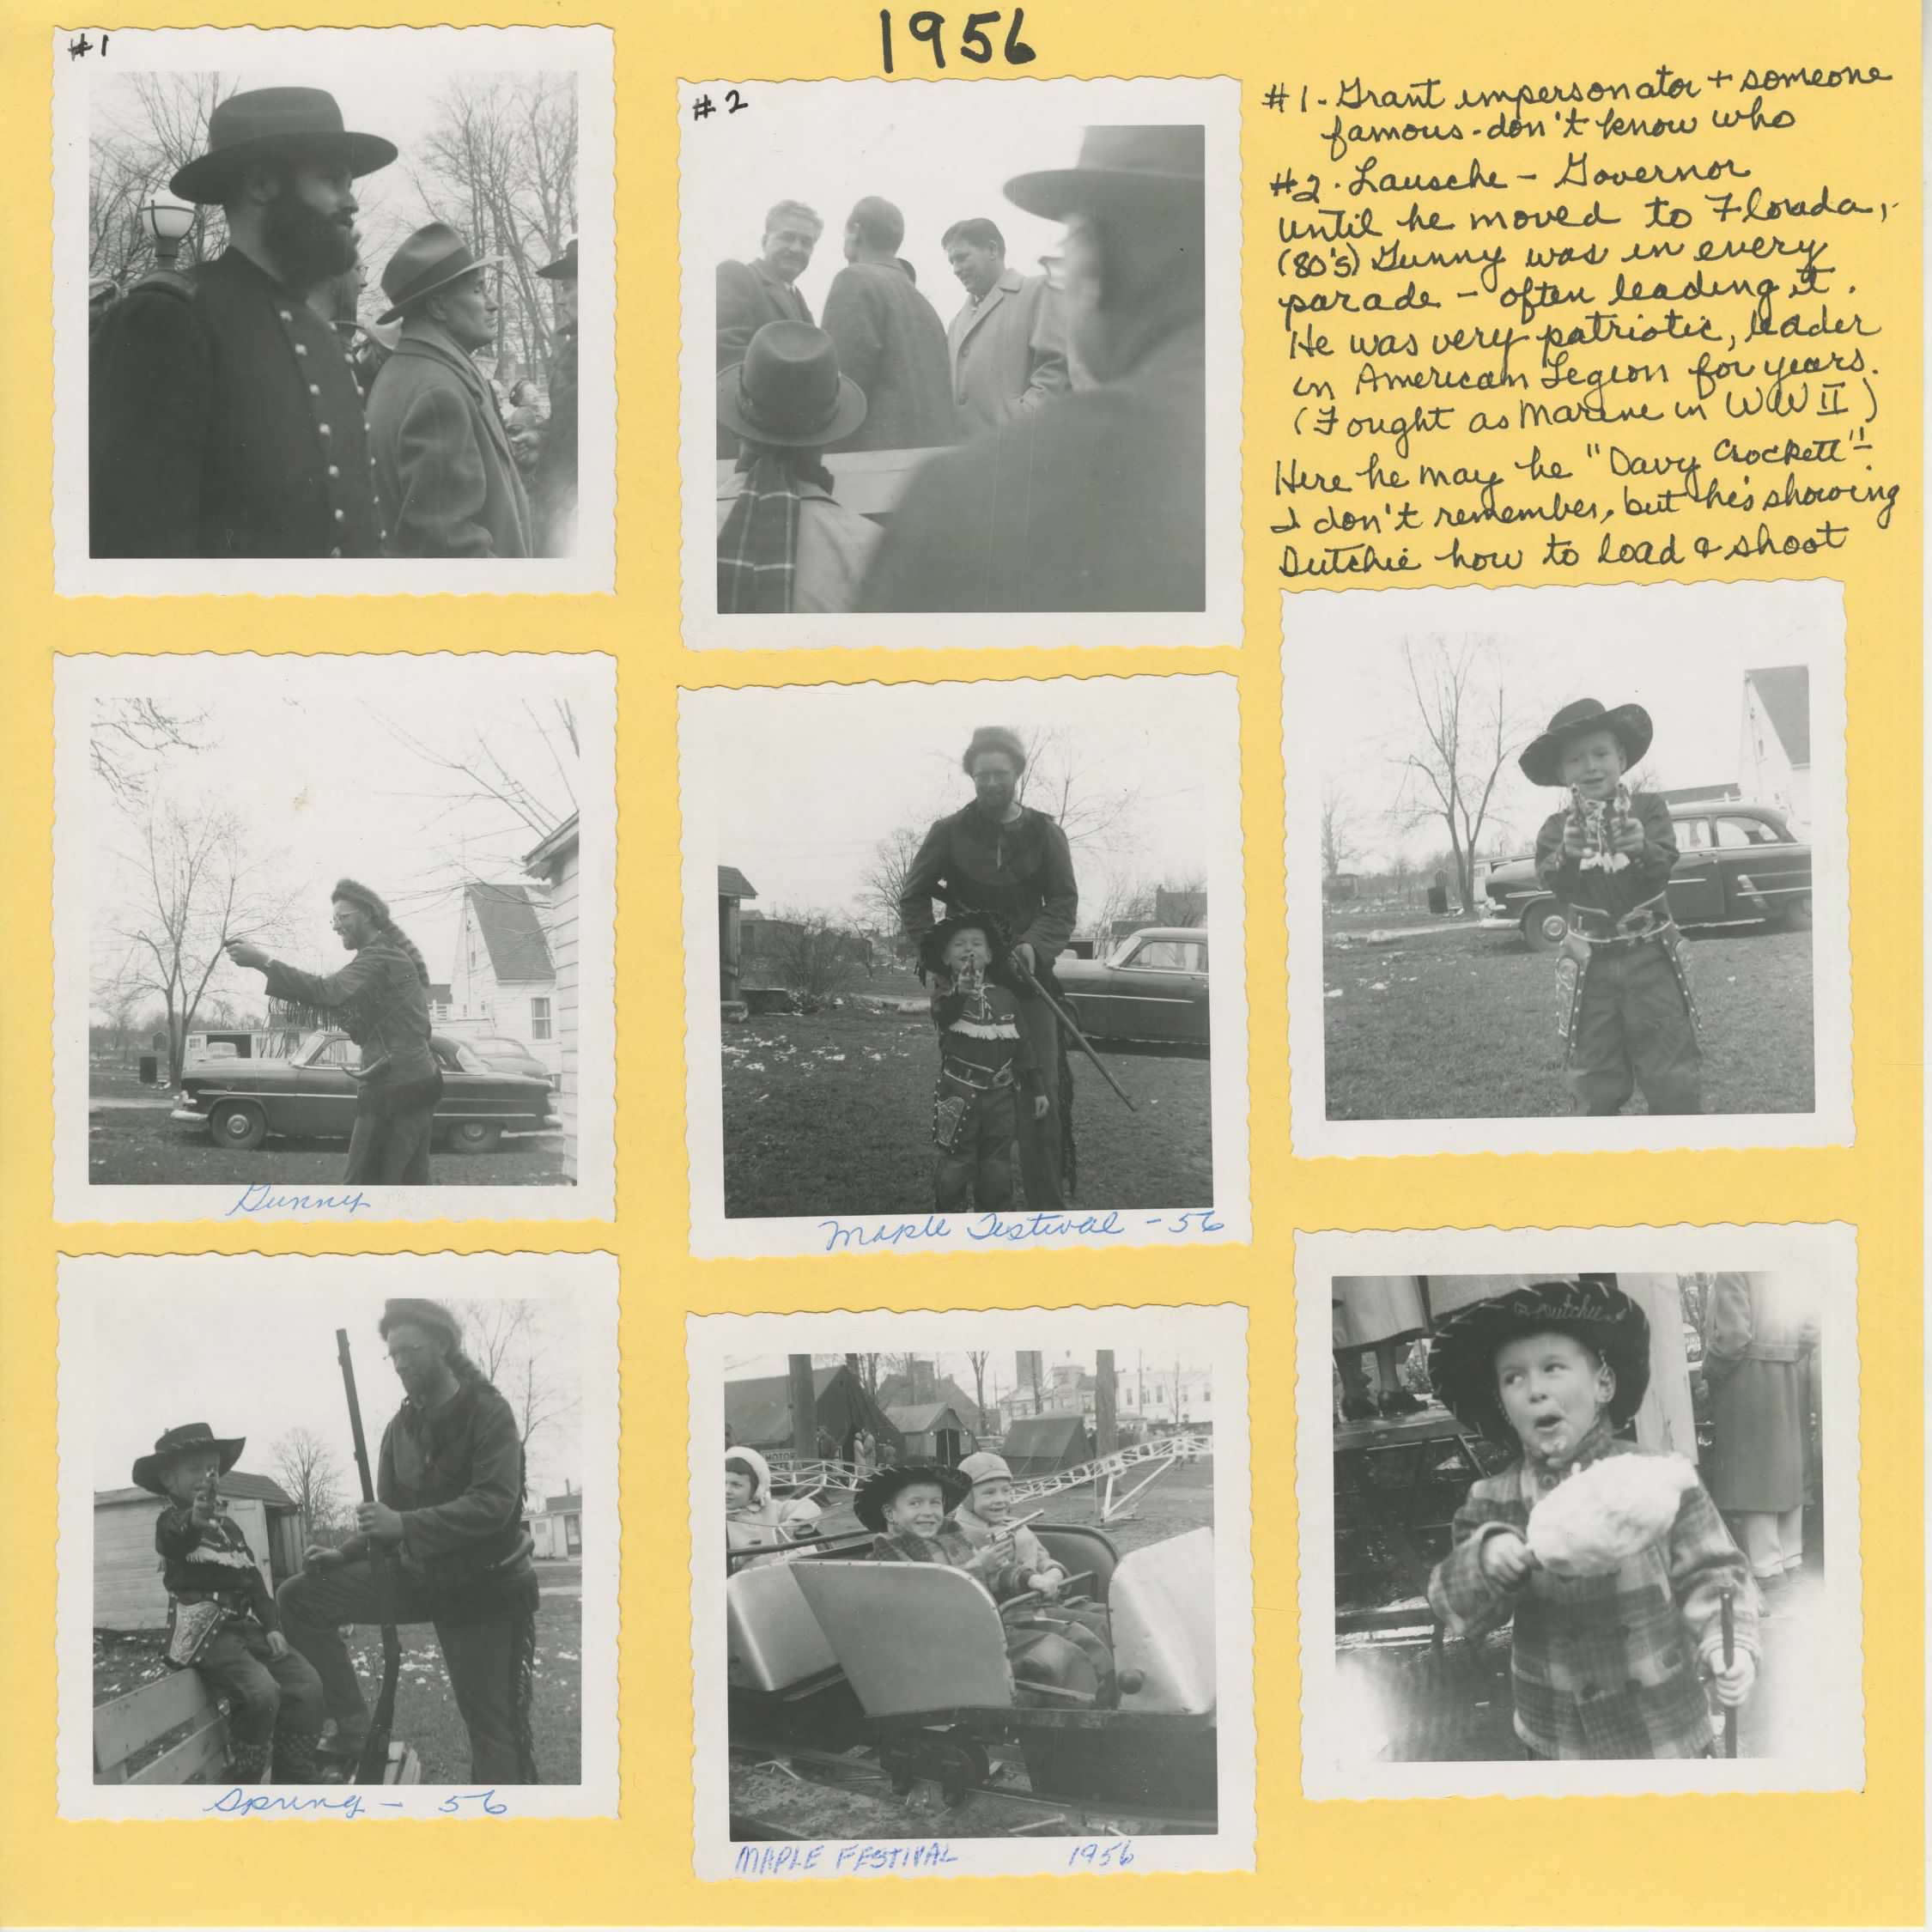 1956
#1
#2
#1- Grant impersonator + someone
famous - don't know who
#2. Lausche - Governor
until he moved to Florada,
(80's) Gunny was in every
parade - often leading it.
He was very patriotic, leader
in American Legion for years.
(Fought as Marine in WW II)
Here he may be "Davy Crockett"!
I don't remember, but he's showing
Dutchie how to load & shoot
Gunny
Maple Festival - 56
Spring - 56
MAPLE FESTIVAL 1956
Dutchie
MOTOR